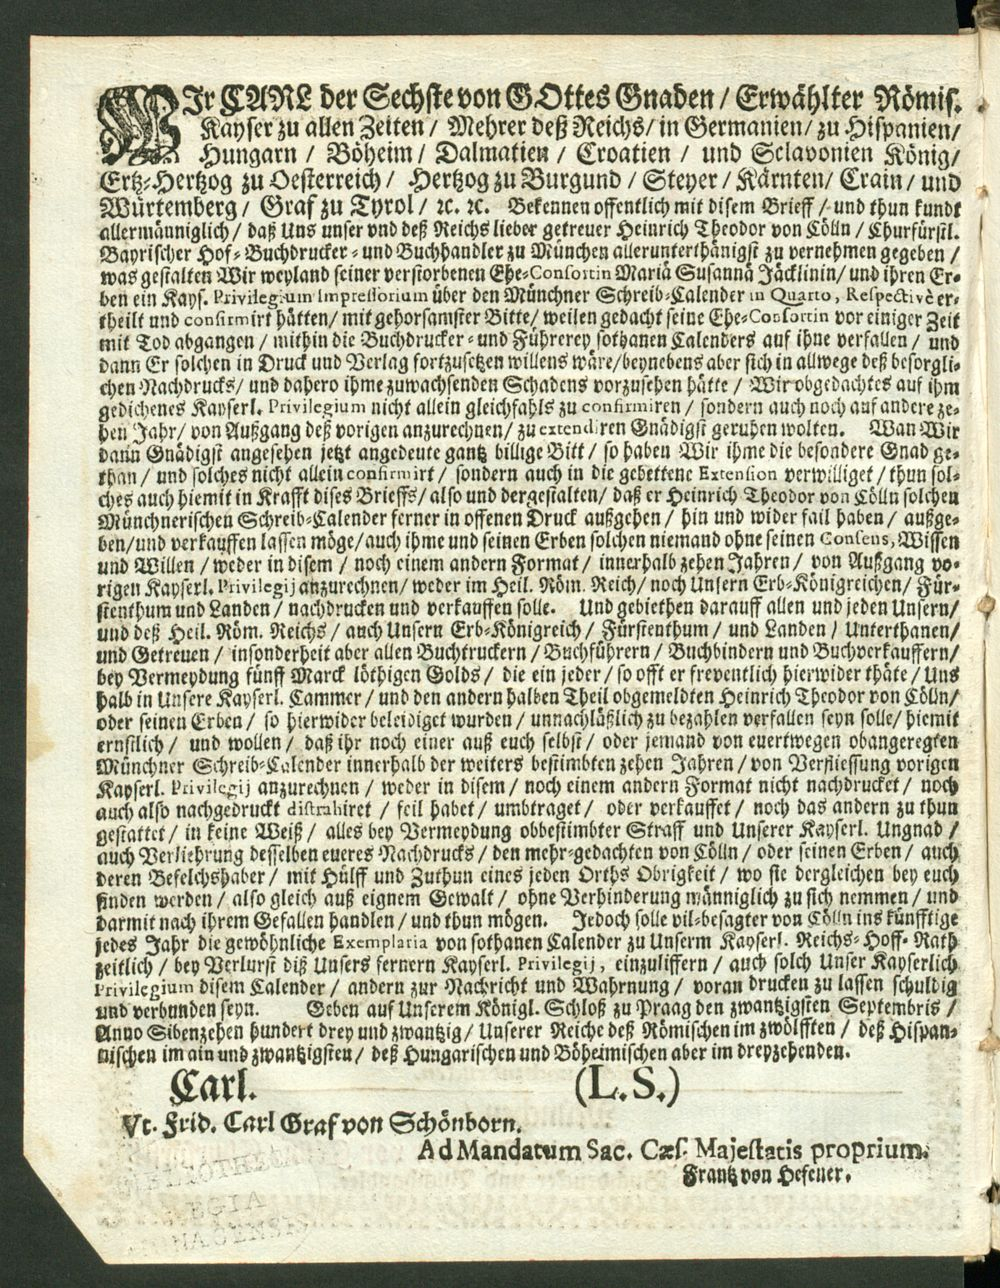 WIr CARL der Sechste von GOttes Gnaden / Erwählter Römis.
Kayser zu allen Zeiten / Mehrer deß Reichs / in Germanien / zu Hispanien /
Hungarn / Böheim / Dalmatien / Croatien / und Sclavonien König /
Ertz-Hertzog zu Oesterreich / Hertzog zu Burgund / Steyer / Kärnten / Crain / und
Würtemberg / Graf zu Tyrol / ꝛc. ꝛc. Bekennen offentlich mit disem Brieff / und thun kundt
allermänniglich / daß Uns unser und deß Reichs lieber getreuer Heinrich Theodor von Cölln / Churfürstl.
Bayrischer Hof-Buchdrucker- und Buchhandler zu München allerunterthänigst zu vernehmen gegeben /
was gestalten Wir weyland seiner verstorbenen Ehe-Consortin Mariâ Susannâ Jäcklinin / und ihren Er-
ben ein Kays. Privilegium Impressorium über den Münchner Schreib-Calender in Quarto, Respectivè er-
theilt und confirmirt hätten / mit gehorsamster Bitte / weilen gedacht seine Ehe-Consortin vor einiger Zeit
mit Tod abgangen / mithin die Buchdrucker- und Führerey sothanen Calenders auf ihne verfallen / und
dann Er solchen in Druck und Verlag fortzusetzen willens wäre / beynebens aber sich in allwege deß besorgli-
chen Nachdrucks / und dahero ihme zuwachsenden Schadens vorzusehen hätte / Wir obgedachtes auf ihm
gedichenes Kayserl. Privilegium nicht allein gleichfahls zu confirmiren / sondern auch noch auf andere ze-
hen Jahr / von Außgang deß vorigen anzurechnen / zu extendiren Gnädigst geruhen wolten. Wan Wir
dann Gnädigst angesehen jetzt angedeute gantz billige Bitt / so haben Wir ihme die besondere Gnad ge-
than / und solches nicht allein confirmirt / sondern auch in die gebettene Extension verwilliget / thun sol-
ches auch hiemit in Krafft dises Brieffs / also und dergestalten / daß er Heinrich Theodor von Cölln solchen
Münchnerischen Schreib-Calender ferner in offenen Druck außgehen / hin und wider fail haben / außge-
ben / und verkauffen lassen möge / auch ihme und seinen Erben solchen niemand ohne seinen Consens, Wissen
und Willen / weder in disem / noch einem andern Format / innerhalb zehen Jahren / von Außgang vo-
rigen Kayserl. Privilegij anzurechnen / weder im Heil. Röm. Reich / noch Unsern Erb-Königreichen / Für-
stenthum und Landen / nachdrucken und verkauffen solle. Und gebiethen darauff allen und jeden Unsern /
und deß Heil. Röm. Reichs / auch Unsern Erb-Königreich / Fürstenthum / und Landen / Unterthanen /
und Getreuen / insonderheit aber allen Buchtruckern / Buchführern / Buchbindern und Buchverkauffern /
bey Vermeydung fünff Marck löthigen Golds / die ein jeder / so offt er freventlich hierwider thäte / Uns
halb in Unsere Kayserl. Cammer / und den andern halben Theil obgemeldten Heinrich Theodor von Cölln /
oder seinen Erben / so hierwider beleidiget wurden / unnachläßlich zu bezahlen verfallen seyn solle / hiemit
ernstlich / und wollen / daß ihr noch einer auß euch selbst / oder jemand von euertwegen obangeregten
Münchner Schreib-Calender innerhalb der weiters bestimbten zehen Jahren / von Verfliessung vorigen
Kayserl. Privilegij anzurechnen / weder in disem / noch einem andern Format nicht nachdrucket / noch
auch also nachgedruckt distrahiret / feil habet / umbtraget / oder verkauffet / noch das andern zu thun
gestattet / in keine Weiß / alles bey Vermeydung obbestimbter Straff und Unserer Kayserl. Ungnad /
auch Verliehrung desselben eueres Nachdrucks / den mehr-gedachten von Cölln / oder seinen Erben / auch
deren Befelchshaber / mit Hülff und Zuthun eines jeden Orths Obrigkeit / wo sie dergleichen bey euch
finden werden / also gleich auß eignem Gewalt / ohne Verhinderung männiglich zu sich nemmen / und
darmit nach ihrem Gefallen handlen / und thun mögen. Jedoch solle vil-besagter von Cölln ins künfftige
jedes Jahr die gewöhnliche Exemplaria von sothanen Calender zu Unserm Kayserl. Reichs-Hoff-Rath
zeitlich / bey Verlurst diß Unsers fernern Kayserl. Privilegij, einzuliffern / auch solch Unser Kayserlich
Privilegium disem Calender / andern zur Nachricht und Wahrnung / voran drucken zu lassen schuldig
und verbunden seyn. Geben auf Unserem Königl. Schloß zu Praag den zwantzigsten Septembris /
Anno Sibenzehen hundert drey und zwantzig / Unserer Reiche deß Römischen im zwölfften / deß Hispan-
nischen im ain und zwantzigsten / deß Hungarischen und Böheimischen aber im dreyzehenden.
Carl. (L.S.)
Vt. Frid. Carl Graf von Schönborn.
Ad Mandatum Sac. Cæs. Majestatis proprium.
Frantz von Hesener.
BIBLIOTHECA
REGIA
MONACENSIS